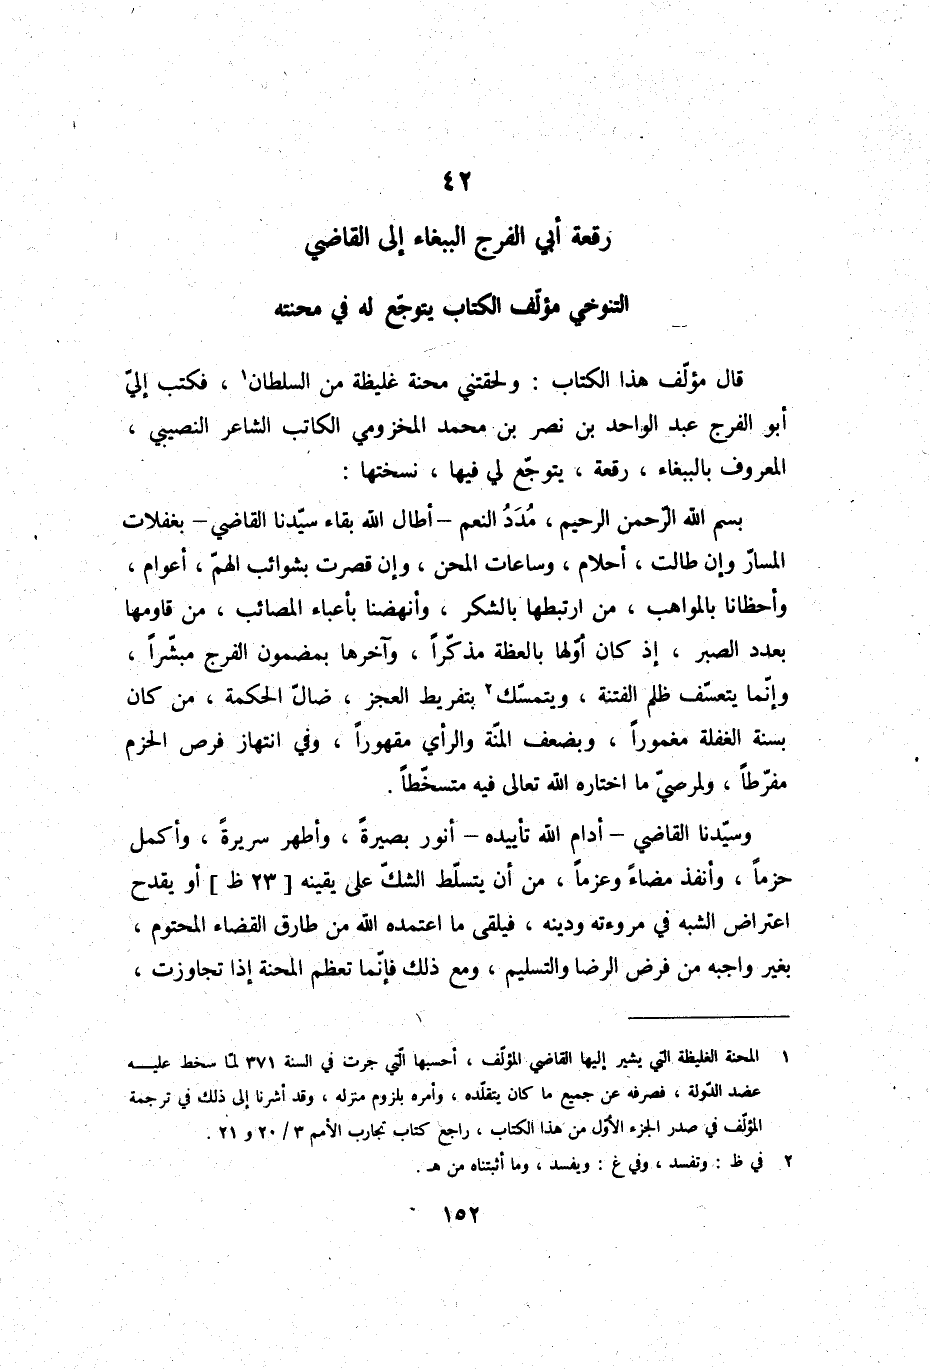 ٤٢
رقعة أبي الفرج الببغاء إلى القاضي
التنوخي مؤلّف الكتاب يتوجّع له في محنته
قال مؤلّف هذا الكتاب : ولحقتني محنة غليظة من السلطان١ ، فكتب إليّ
أبو الفرج عبد الواحد بن نصر بن محمد المخزومي الكاتب الشاعر النصيبي ،
المعروف بالببغاء ، رقعة ، يتوجّع لي فيها ، نسختها :
بسم الله الرّحمن الرحيم ، مُدَدُ النعم – أطال الله بقاء سيّدنا القاضي – بغفلات
المسارّ وإن طالت ، أحلام ، وساعات المحن ، وإن قصرت بشوائب الهمّ ، أعوام ،
وأحظانا بالمواهب ، من ارتبطها بالشكر ، وأنهضنا بأعباء المصائب ، من قاومها
بعدد الصبر ، إذ كان أوّلها بالعظة مذكّراً ، وآخرها بمضمون الفرج مبشّراً ،
وإنّما يتعسّف ظلم الفتنة ، ويتمسّك٢ بتفريط العجز ، ضالّ الحكمة ، من كان
بسنة الغفلة مغموراً ، وبضعف المنّة والرأي مقهوراً ، وفي انتهاز فرص الحزم
مفرّطاً ، ولمرضيّ ما اختاره الله تعالى فيه متسخّطاً .
وسيّدنا القاضي – أدام الله تأييده – أنور بصيرةً ، وأطهر سريرةً ، وأكمل
حزماً ، وأنفذ مضاءً وعزماً ، من أن يتسلّط الشكّ على يقينه [ ٢٣ ظ ] أو يقدح
اعتراض الشبه في مروءته ودينه ، فيلقى ما اعتمده الله من طارق القضاء المحتوم ،
بغير واجبه من فرض الرضا والتسليم ، ومع ذلك فإنّما تعظم المحنة إذا تجاوزت ،
١ المحنة الغليظة التي يشير إليها القاضي المؤلّف ، أحسبها الّتي جرت في السنة ٣٧١ لمّا سخط عليـــه
عضد الدّولة ، فصرفه عن جميع ما كان يتقلّده ، وأمره بلزوم منزله ، وقد أشرنا إلى ذلك في ترجمة
المؤلّف في صدر الجزء الأوّل من هذا الكتاب ، راجع كتاب تجارب الأمم ٣ / ٢٠ و ٢١ .
٢ في ظ : وتفسد ، وفي غ : ويفسد ، وما أثبتناه من هـ .
١٥٢